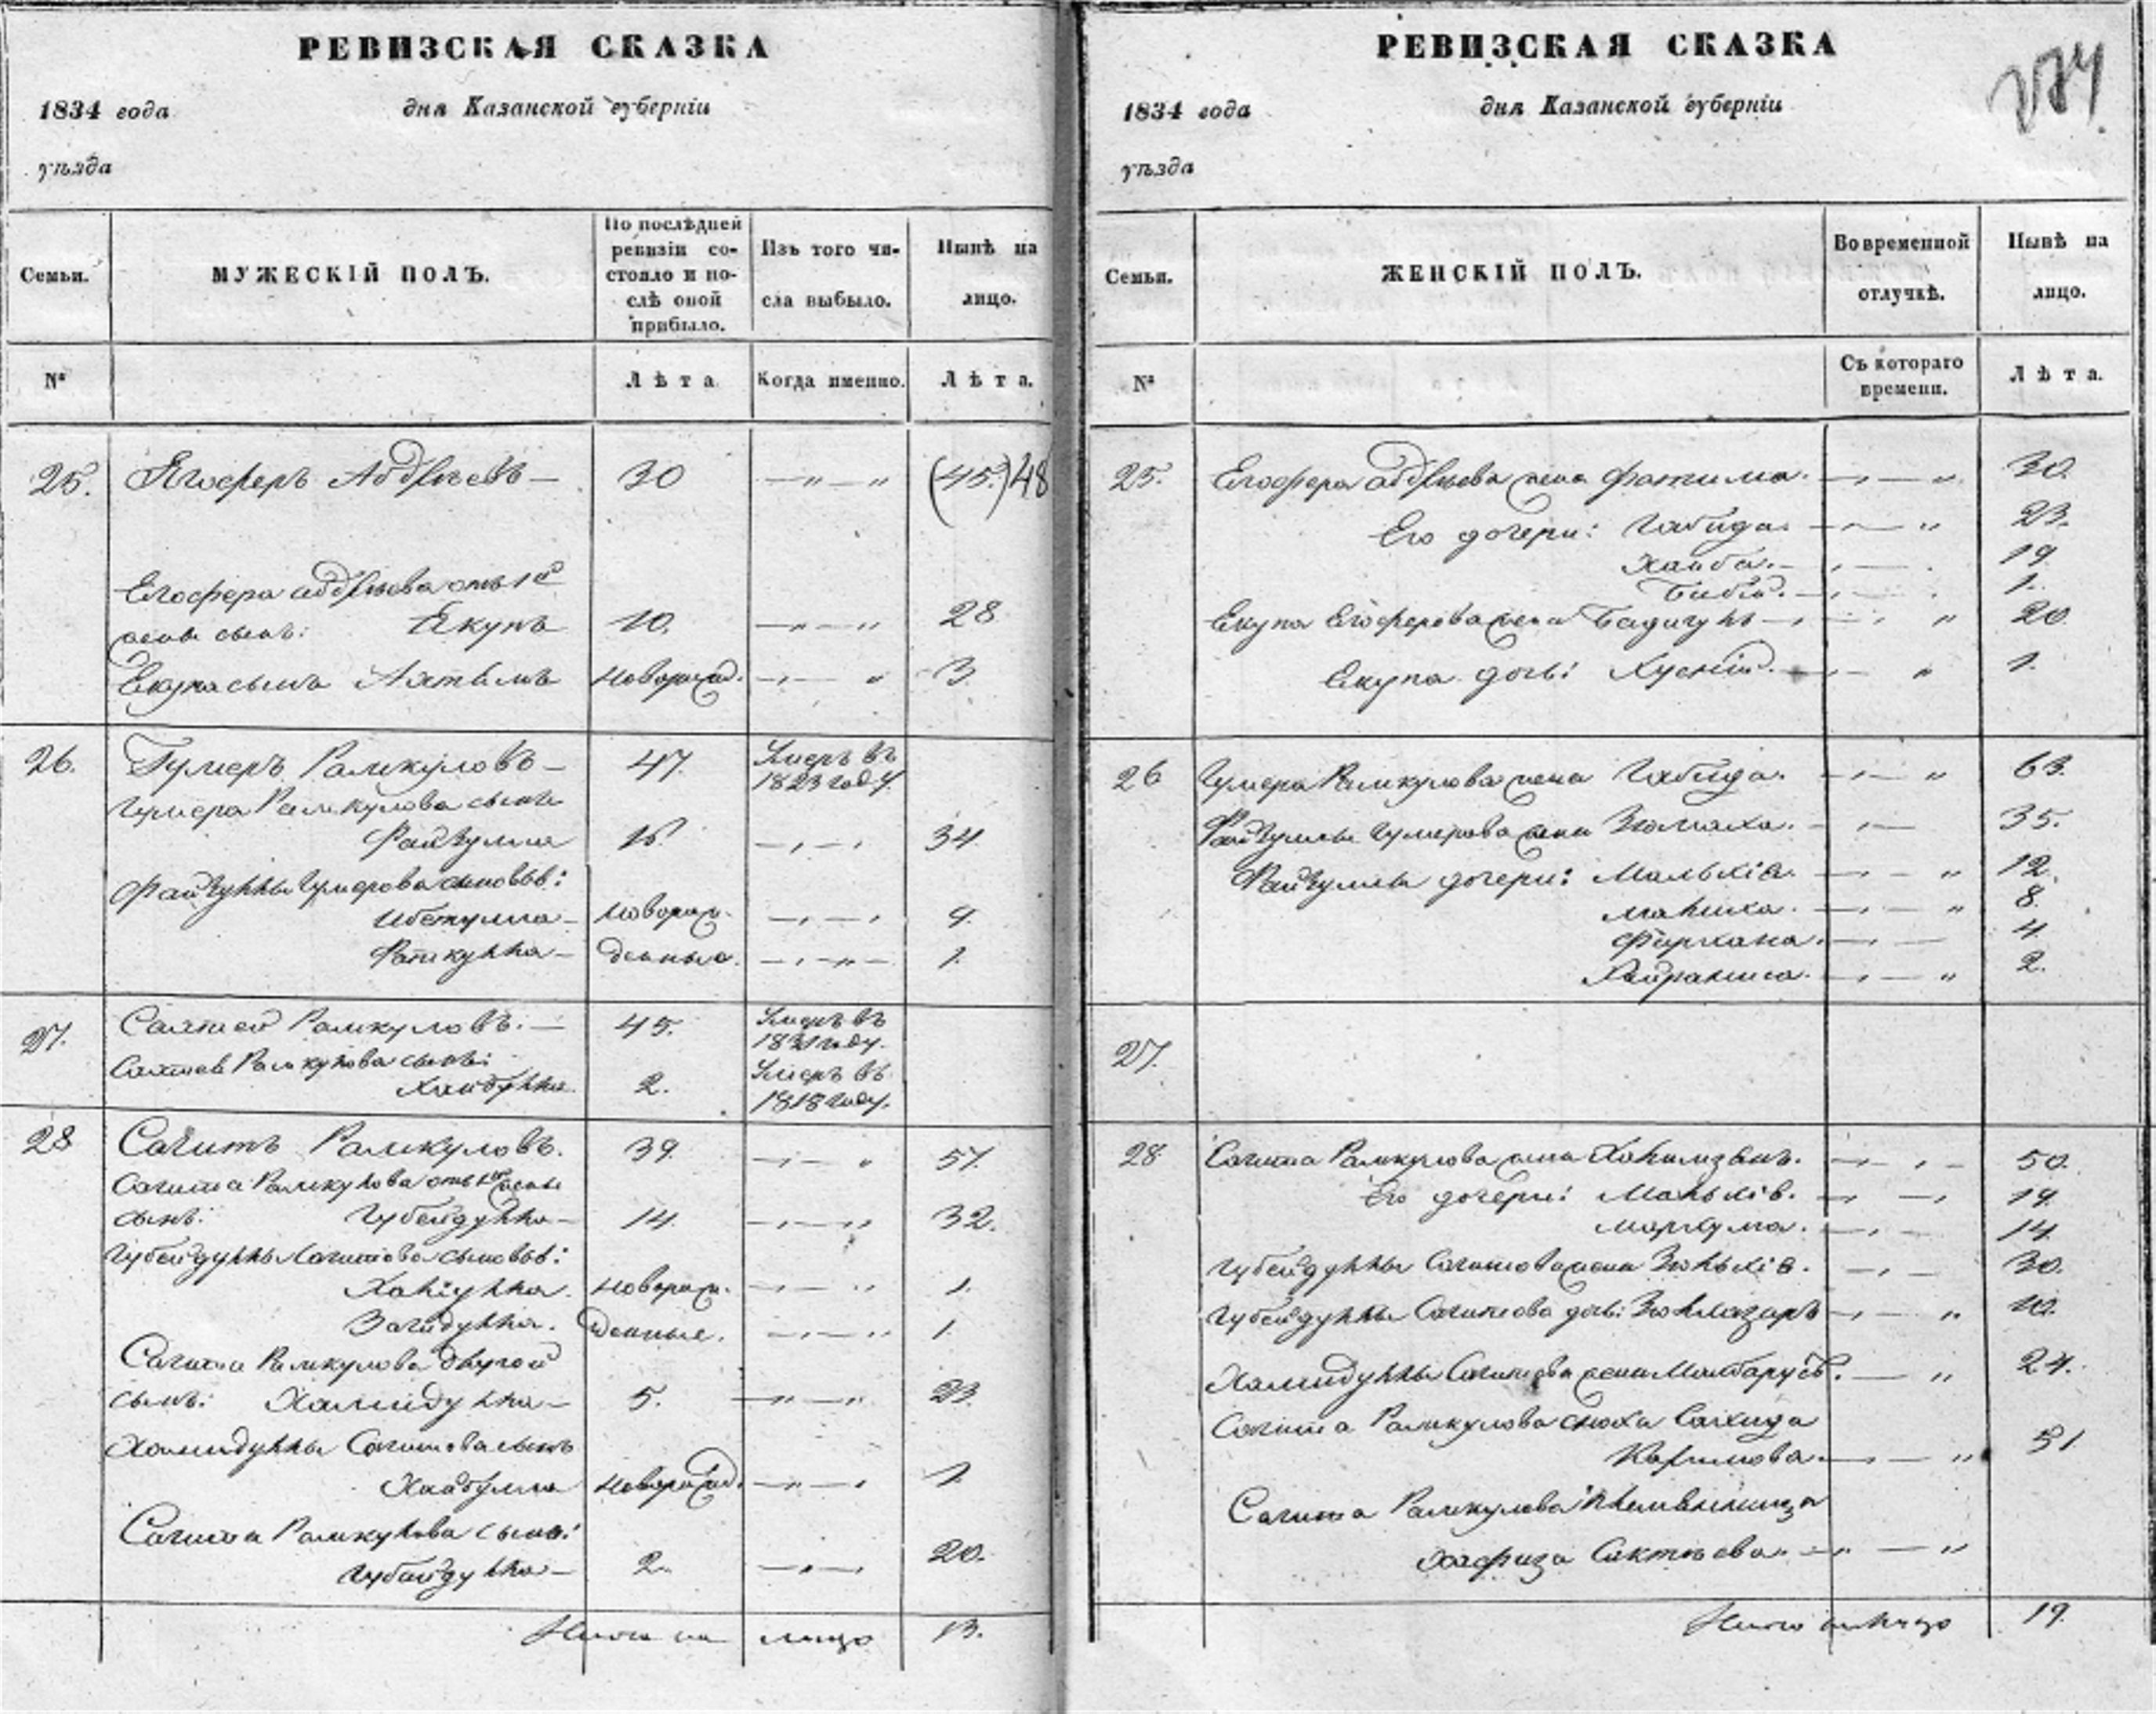 РЕВИЗСКАЯ СКАЗКА
1834 года дня Казанской губерніи
уѣзда
Семьи. МУЖЕСКІЙ ПОЛЪ. По послѣдней ревизіи состояло и послѣ оной прибыло. Изъ того числа выбыло. Нынѣ на лицо.
№ Лѣта Когда именно. Лѣта.
25. Ягоферъ Абдѣевъ — 30 (45.) 48
Ягофера Абдѣева отъ 1й
жены сынъ: Якупъ 10. 28
Якупа сынъ Новорожд. 3
26. Гумеръ Рамкуловъ — 47. Умеръ въ 1823 году.
Гумера Рамкулова сынъ
Файзулла 16. 34
Файзуллы Гумерова сыновья:
Ибетулла — новорож- 4.
Фаткулла — денные. 1.
27. Рамкуловъ. — 45. Умеръ въ 1831 году.
Рамкулова сынъ:
Хайбулла. 2. Умеръ въ 1818 году.
28 Сагитъ Рамкуловъ. 39. 57.
Сагита Рамкулова отъ 1й жены
сынъ: Губейдулла — 14. 32.
Губейдуллы Сагитова сыновья:
новорож. 1.
Загидулла. денные. 1.
Сагита Рамкулова другой
сынъ: Хамидулла — 5. 23.
Хамидуллы Сагитова сынъ
Хайбулла новорожд. 1.
Сагита Рамкулова сынъ:
Губайдулла — 2. 20.
Итого на лицо 13.
РЕВИЗСКАЯ СКАЗКА
274.
1834 года дня Казанской губерніи
уѣзда
Семьи. ЖЕНСКІЙ ПОЛЪ. Во временной отлучкѣ. Нынѣ на лицо.
№ Съ котораго времени. Лѣта.
25. Ягофера Абдѣева жена Фатима. 30.
Его дочери: Габида. 23.
Хайба. 19
Биби. 1.
Якупа Ягоферова жена 20
Якупа дочь: Хуснія. 1.
26 Гумера Рамкулова жена Габида. 63.
Файзуллы Гумерова жена 35.
Файзуллы дочери: Мальхія. 12.
8.
Фархана. 4
Хайраниса. 2.
27.
28 Сагита Рамкулова жена 50.
Его дочери: 19.
Маркума. 14.
Губейдуллы Сагитова жена 30.
Губейдуллы Сагитова дочь: 10.
Хамидуллы Сагитова жена 24.
Сагита Рамкулова сноха
Каримова. 51
Сагита Рамкулова племянница
Хафиза
Итого на лицо 19.